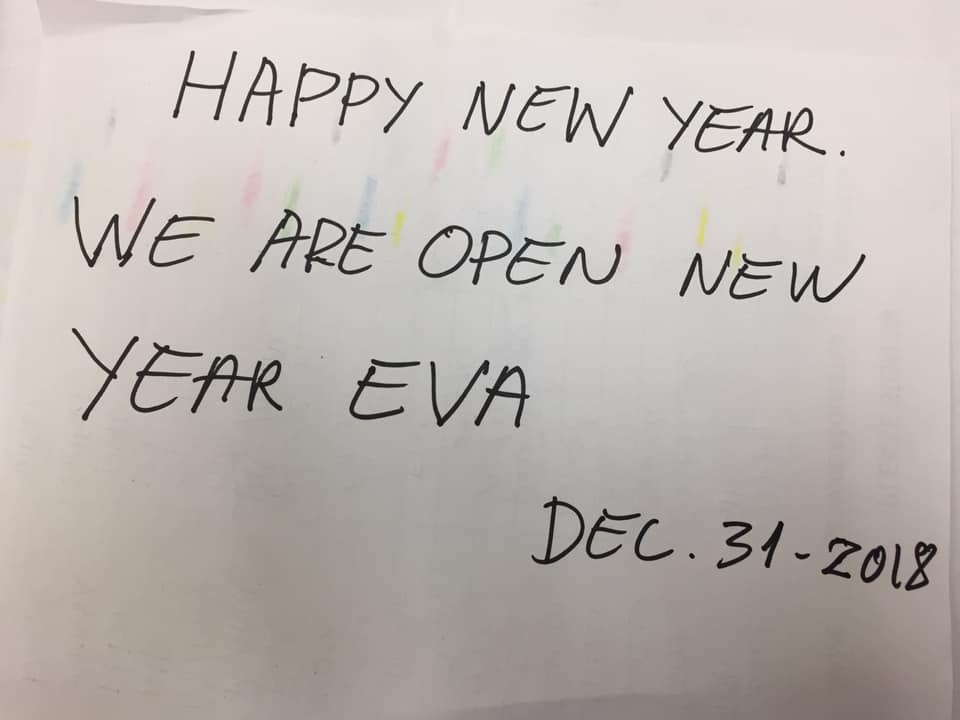 HAPPY NEW YEAR.
WE ARE OPEN NEW
YEAR EVA
DEC. 31-2018